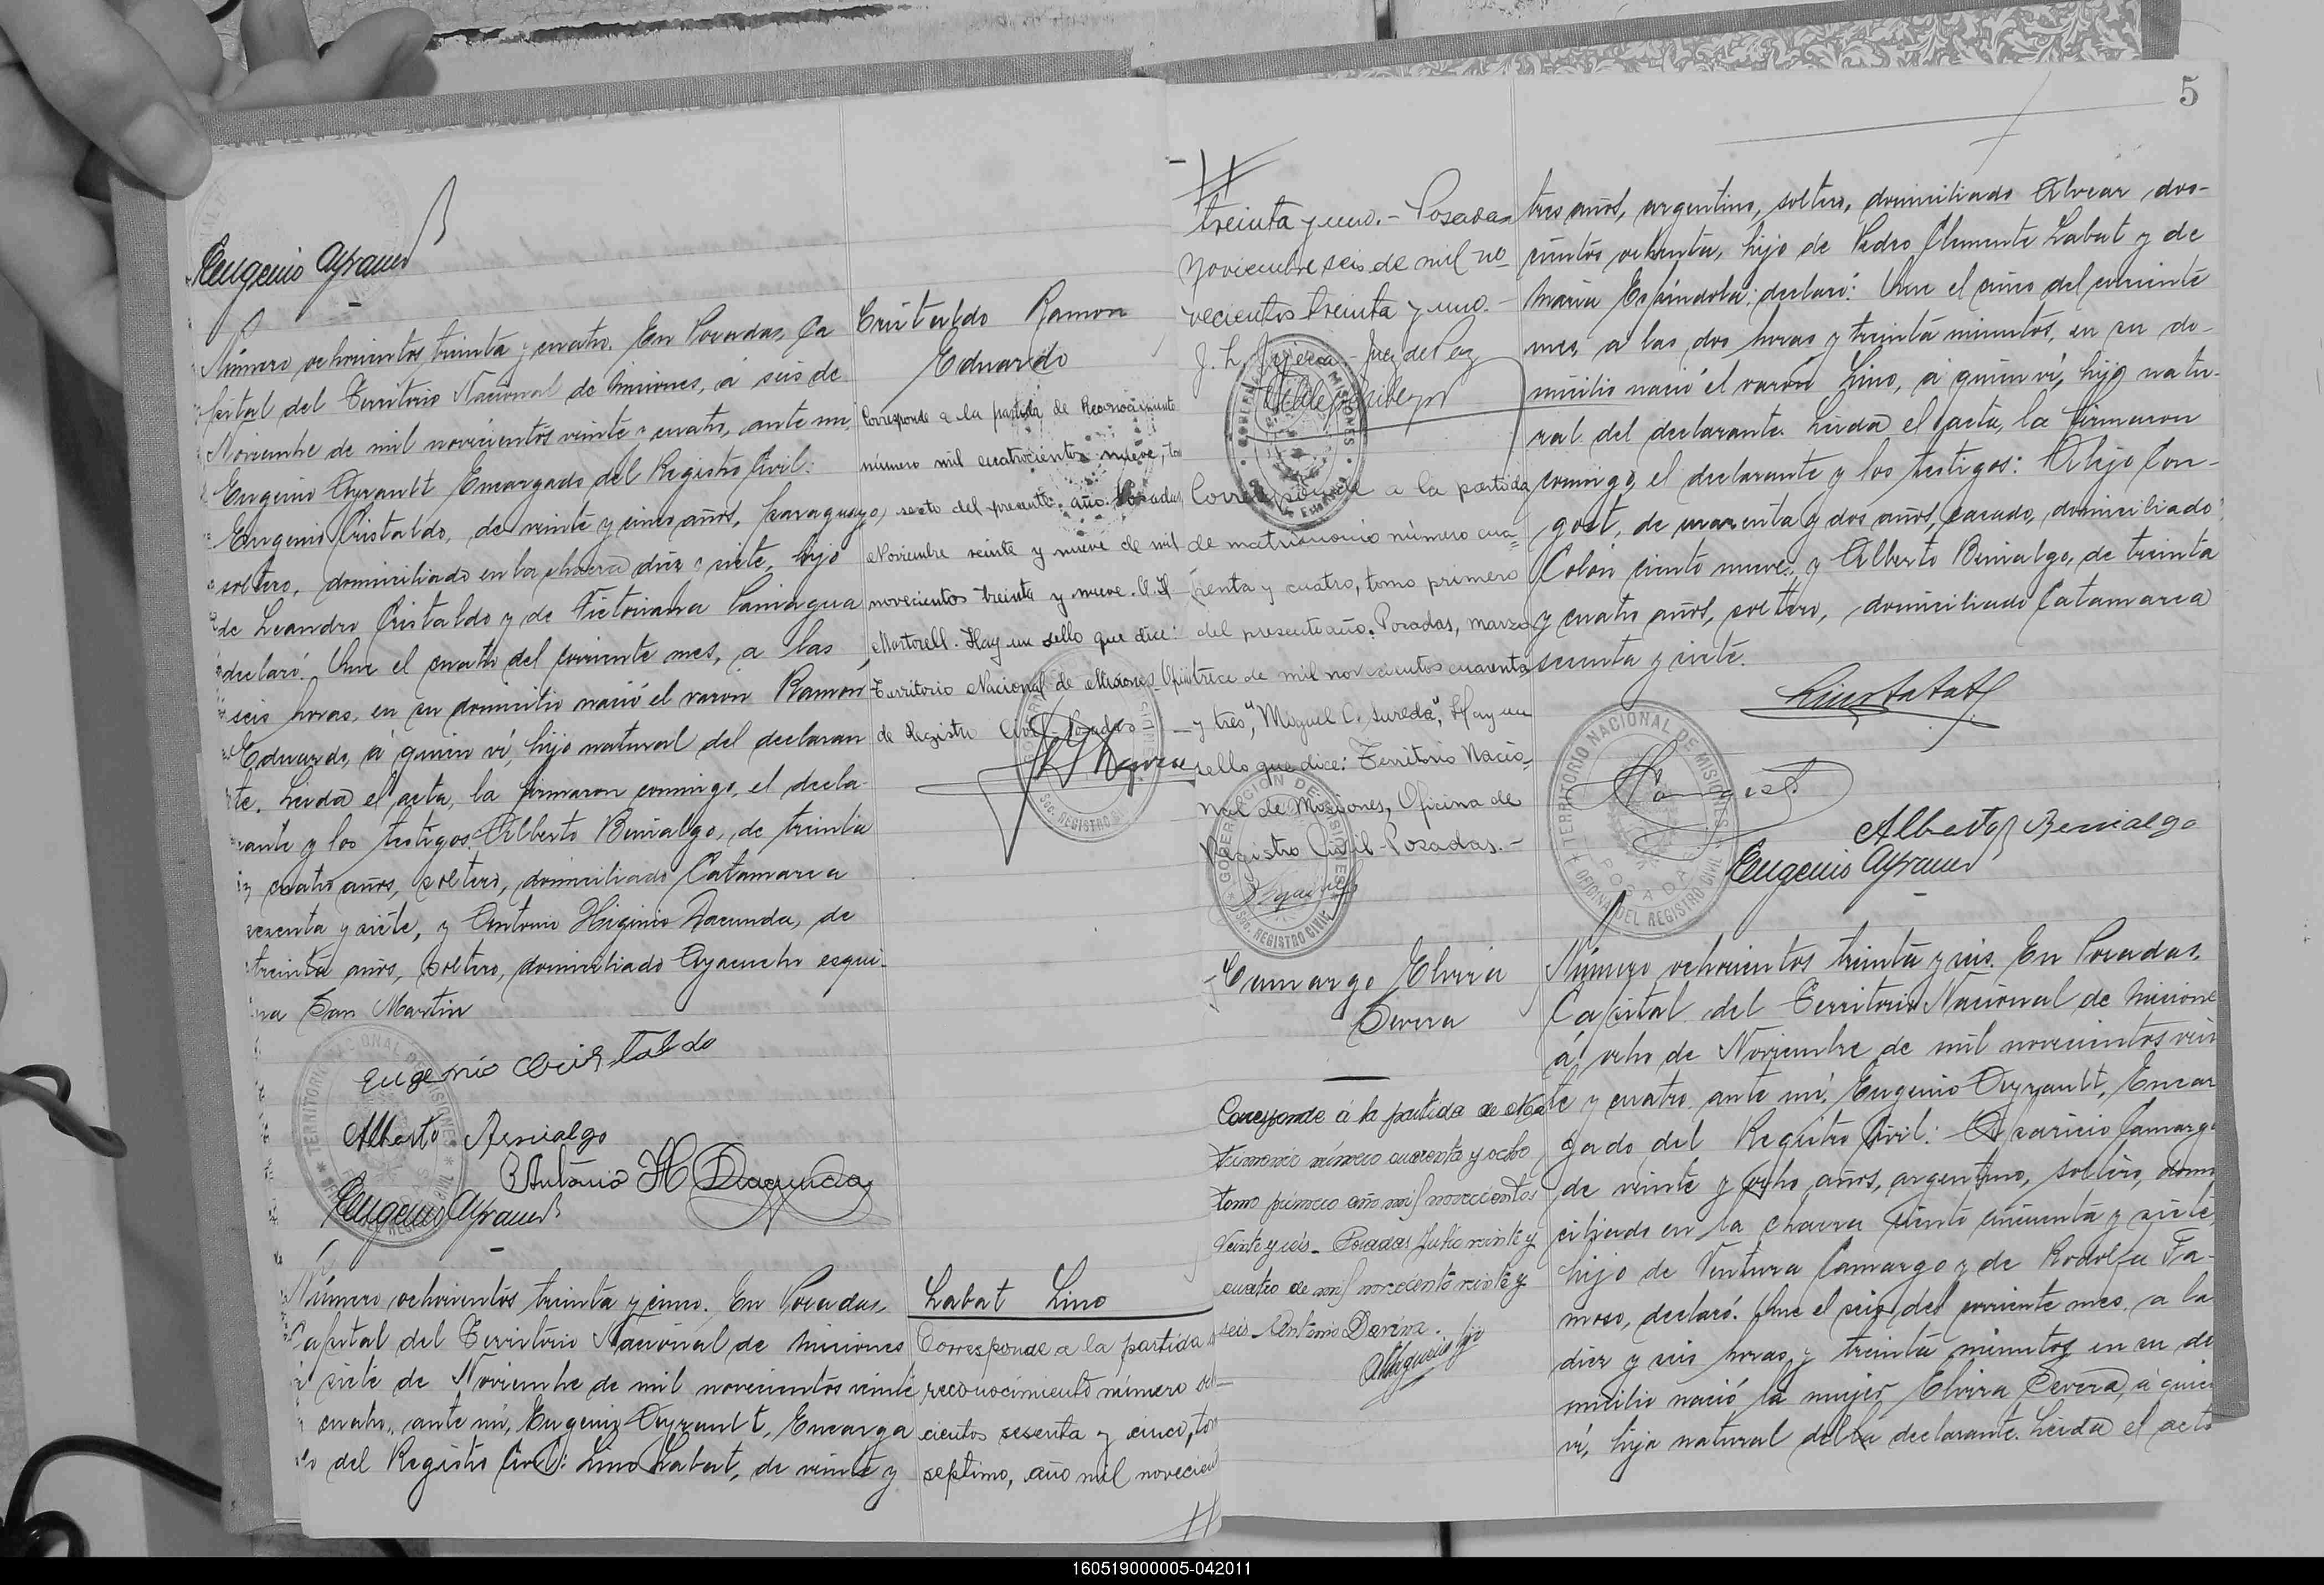 Eugenio Ayrault
Número ochocientos treinta y cuatro. En Posadas, Ca
pital del Territorio Nacional de Misiones, á seis de
Noviembre de mil novecientos veinte y cuatro, ante mi,
Eugenio Ayrault Encargado del Registro Civil:
Eugenio Cristaldo, de veinte y cinco años, paraguayo,
soltero, domiciliado en la chacra diez y siete, hijo
de Leandro Cristaldo y de Victoriana Paniagua
declaró: Que el cuatro del corriente mes, a las
seis horas, en su domicilio nació el varon Ramon
Eduardo, á quien ví, hijo natural del declaran
te. Leida el acta, la firmaron conmigo, el decla-
rante y los testigos: Alberto Benialgo, de treinta
y cuatro años, soltero, domiciliado Catamarca
sesenta y siete, y Antonio Higinio Dacunda, de
treinta años, soltero, domiciliado Ayacucho esqui-
na San Martin
Eugenio Cristaldo
Alberto Benialgo
Antonio H Dacunda
Eugenio Ayrault
Número ochocientos treinta y cinco. En Posadas,
Capital del Territorio Nacional de Misiones
á siete de Noviembre de mil novecientos veinte
cuatro, ante mí, Eugenio Ayrault, Encarga
do del Registro Civil: Lino Labat, de veinte y
Cristaldo Ramon
Eduardo
Corresponde a la partida de Reconocimiento
número mil cuatrocientos nueve, to
sexto del presente año. Posadas,
Noviembre veinte y nueve de mil
novecientos treinta y nueve.
Martorell. Hay un sello que dice:
Territorio Nacional de Misiones. Ofici
de Registro Civil Posadas
Labat Lino
Corresponde a la partida
reconocimiento número och-
cientos sesenta y cinco, to
septimo, año mil novecien
5
treinta y uno.- Posadas
Noviembre seis de mil no
vecientos treinta y uno.-
Juez de Paz
Corresponde a la partida
de matrimonio número cua=
renta y cuatro, tomo primero
del presente año. Posadas, marzo
trece de mil novecientos cuarenta
y tres, "Miguel C. Sureda", Hay un
sello que dice: Territorio Nacio=
nal de Misiones, Oficina de
Registro Civil - Posadas.-
Camargo Elvira
Severa
Corresponde á la partida de ma
trimonio número cuarenta y ocho
tomo primero año mil novecientos
veinte y seis_ Posadas Julio veinte y
cuatro de mil novecientos veinte y
seis_ Antonio
tres años, argentino, soltero, domiciliado Alvear dos-
cientos ochenta, hijo de Pedro Clemente Labat y de
Maria Espíndola; declaró: Que el cinco del corriente
mes, a las dos horas y treinta minutos, en su do-
micilio nació el varón Lino, á quien ví, hijo natu-
ral del declarante. Leida el acta, la firmaron
conmigo, el declarante y los testigos: Alejo Con-
gost, de cuarenta y dos años, casado, domiciliado
Colón ciento nueve, y Alberto Benialgo, de treinta
y cuatro años, soltero, domiciliado Catamarca
sesenta y siete.
Lino Labat
TERRITORIO NACIONAL DE MISIONES
POSADAS
OFICINA DEL REGISTRO CIVIL
Alberto Benialgo
Eugenio Ayrault
Número ochocientos treinta y seis. En Posadas,
Capital del Territorio Nacional de Misione
á ocho de Noviembre de mil novecientos vein
te y cuatro, ante mí, Eugenio Ayrault, Encar
gado del Registro Civil: Aparicio Camargo
de veinte y ocho años, argentino, soltero, domi
ciliado en la chacra ciento cincuenta y siete,
hijo de Ventura Camargo y de Rodolfa Fa-
moso, declaró: Que el seis del corriente mes, a la
diez y seis horas y treinta minutos en su do
micilio nació la mujer Elvira Severa, á quien
ví, hija natural del declarante. Leida el acta
160519000005-042011